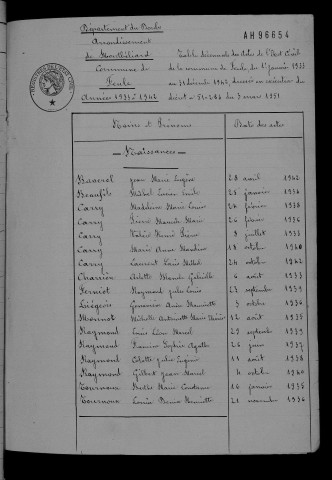 Département du Doubs
Arrondissement
de Montbéliard
Commune de
Feule
Années 1933 à 1942
AH96654
Table décennale des actes de l'Etat Civil
de la commune de Feule du 1er Janvier 1933
au 31 décembre 1942, dressée en exécution du
décret n° 51-284 du 3 mars 1951
Noms et Prénoms Date des actes
Naissances
Jean Marie Eugène 28 août 1942
Beaufils 25 janvier 1936
Carry Madeleine Marie Louise 24 février 1938
Carry Pierre Marie 26 février 1936
Carry Henri Pierre 8 juillet 1933
Carry Marie Anne 18 octobre 1940
Carry Laurent Louis 24 octobre 1942
Charrière Arlette Gabrielle 6 août 1937
Ferniot Raymond Jules Louis 23 septembre 1939
Liégeois Geneviève Annie Henriette 3 octobre 1936
Monnot Michelle Antoinette Marie 12 août 1935
Raymond Louis Léon Marcel 29 septembre 1939
Raymond Agathe 26 janvier 1937
Raymond Colette Eugénie 11 août 1938
Raymond Gilbert Jean Marcel 4 octobre 1940
Tournoux Marie 16 janvier 1935
Tournoux Henriette 21 novembre 1936